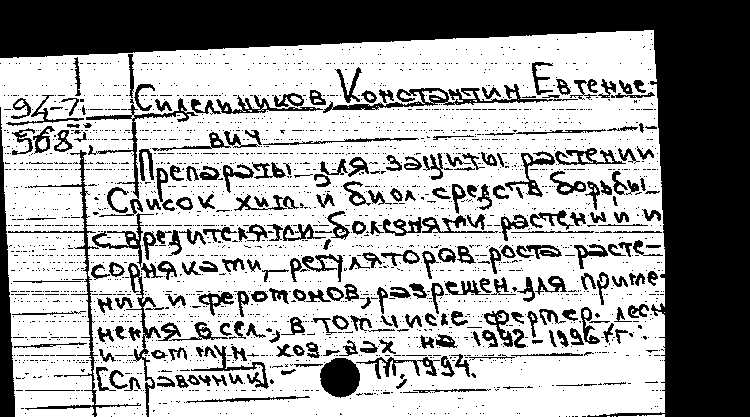 94-7:
568
Сидельников, Константин Евгенье-
вич
Препараты для защиты растений
Список хим. и биол. средств борьбы
с вредителями, болезнями растений и
сорняками, регуляторов роста расте-
ний и феромонов, разрешен. для приме-
нения в сел., в том числе фермер. лесн
и коммун. хоз-вах на 1992-1996 гг.:
[Справочник]. - М, 1994.